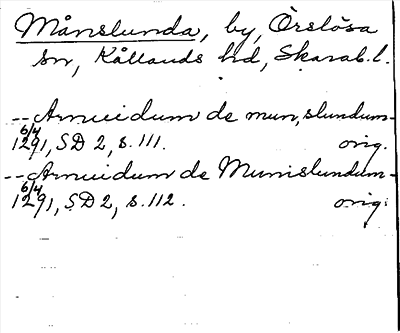 Månslunda, by, Örslösa
sn, Kållands hd, Skarab.l.
-- Arnuidum de mun,slundum-
6/4
1291, SD 2, s. 111. orig.
-- Arnuidum de Munislundum-
6/4
1291, SD 2, s. 112. orig.